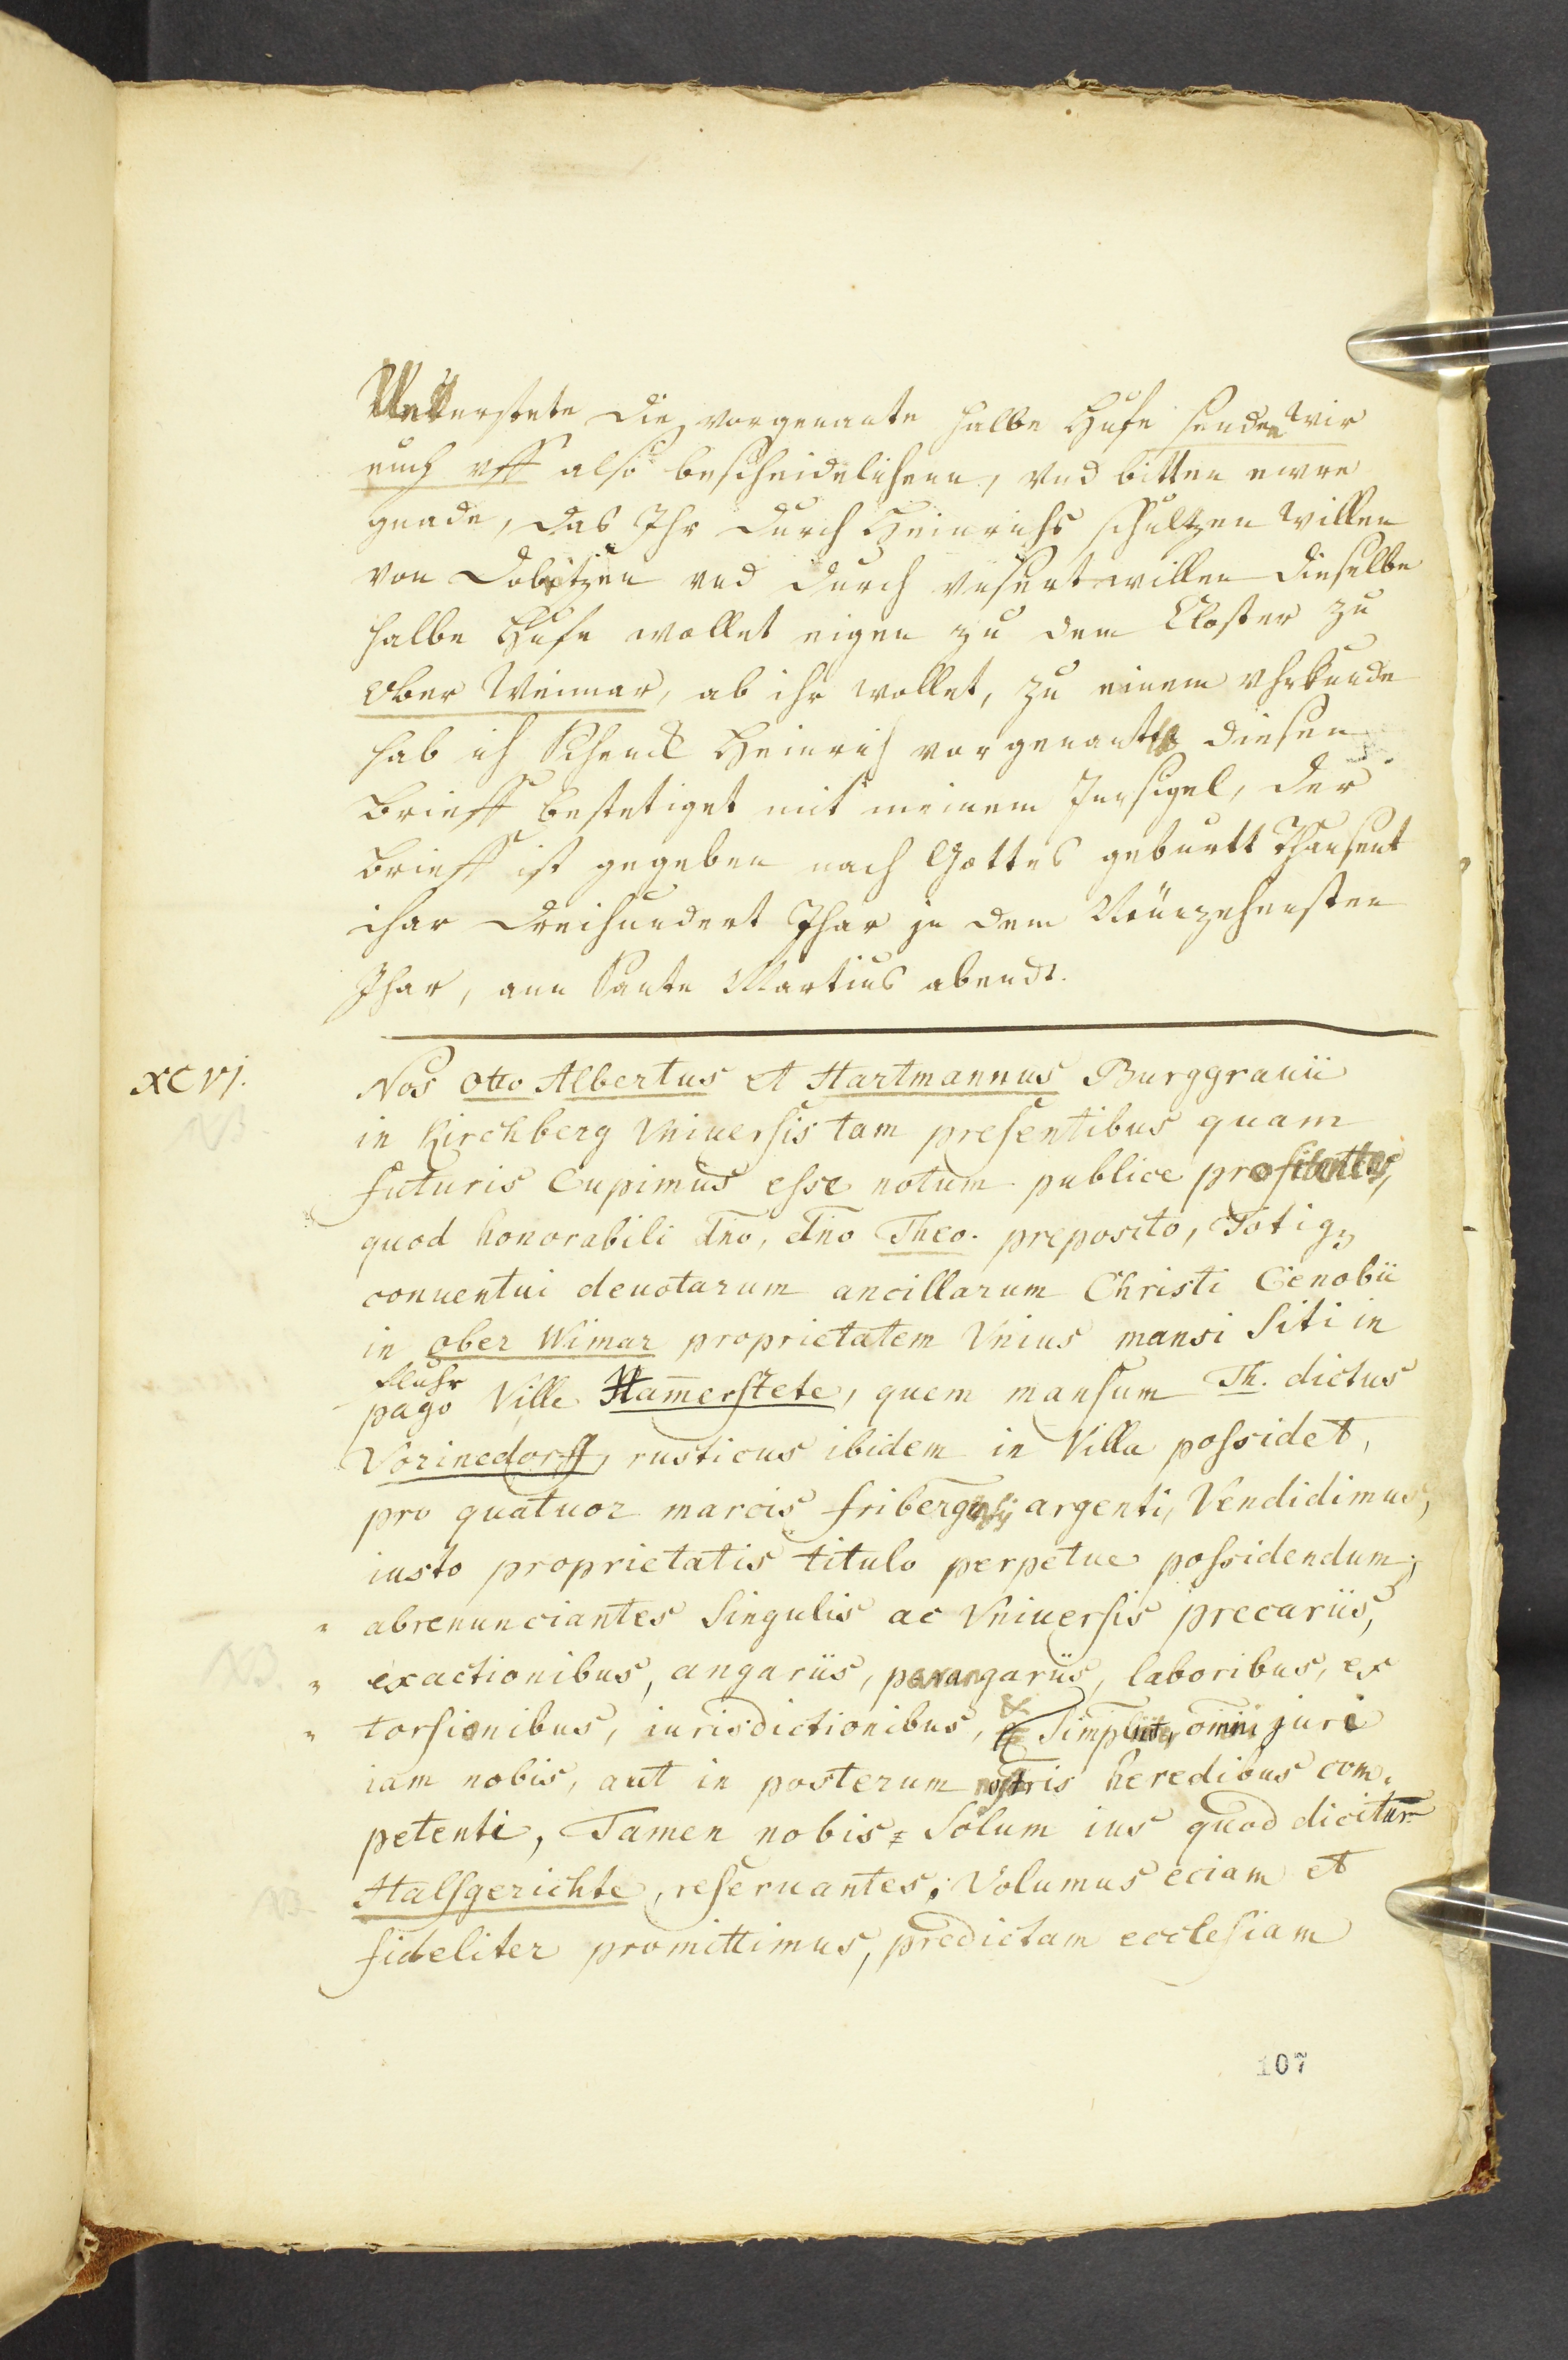 Vnderstete die vorgenante halbe Hufe senden wir
euch vff also bescheidelichenn, vnd bitten ewre
gnade, das Ihr durch Heinrichs schultzen willen
von Dobitzen vnd durch vnsert willen dieselbe
halbe Hufe wollet eigen zu dem Closter zu
Ober Weimar, ab ihr wollet, zu einem Uhrkunde
hab ich Schenck Heinrich vorgenantt diesen
brieff bestetiget mit meinem Innsigel, der
brieff ist gegeben nach Gottes geburtt Thausent
ihar dreihundert Ihar jn dem Neunzehensten
Ihar, ann Sante Martins abendt.
XCVj. Nos Otto Albertus et Hartmannus Burggrauii
NB. in Kirchberg Vniuersis tam presentibus quam
futuris Cupimus esse notum publice profitentes,
quod honorabili dn̄o, dn̄o Theo. preposito, Totiqȝ
conuentui deuotarum ancillarum Christi Cenobii
in ober Wimar proprietatem Vnius mansi Siti in
fluhr
pago Ville Ham̄erstete, quem mansum Th. dictus
Vorinedorff, rusticus ibidem in Villa possidet,
pro quatuor marcis fribergn̄sij argenti, Vendidimus,
iusto proprietatis titulo perpetue possidendum,
" abrenunciantes Singulis ac Vniuersis precariis,
NB. " exactionibus, angariis, parangariis, laboribus, ex
" torsionibus, iurisdictionibus, & Simpliciter omni juri
iam nobis, aut in posterum nostris heredibus com-
petenti, Tamen nobis Solum ius quod dicitur
NB. Halsgerichte, reseruantes; Volumus eciam et
fideliter promittimus, predictam ecclesiam
107